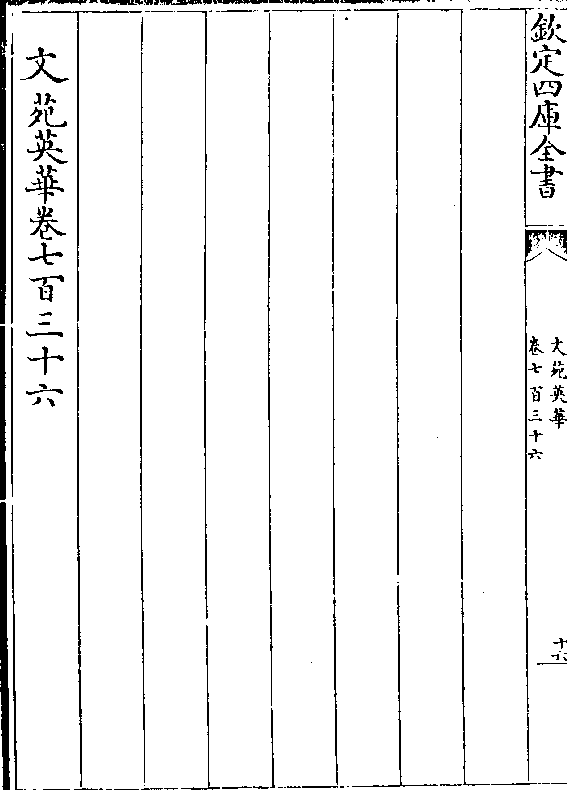 欽定四庫全書
文苑英華
卷七百三十六
十六
文苑英華卷七百三十六